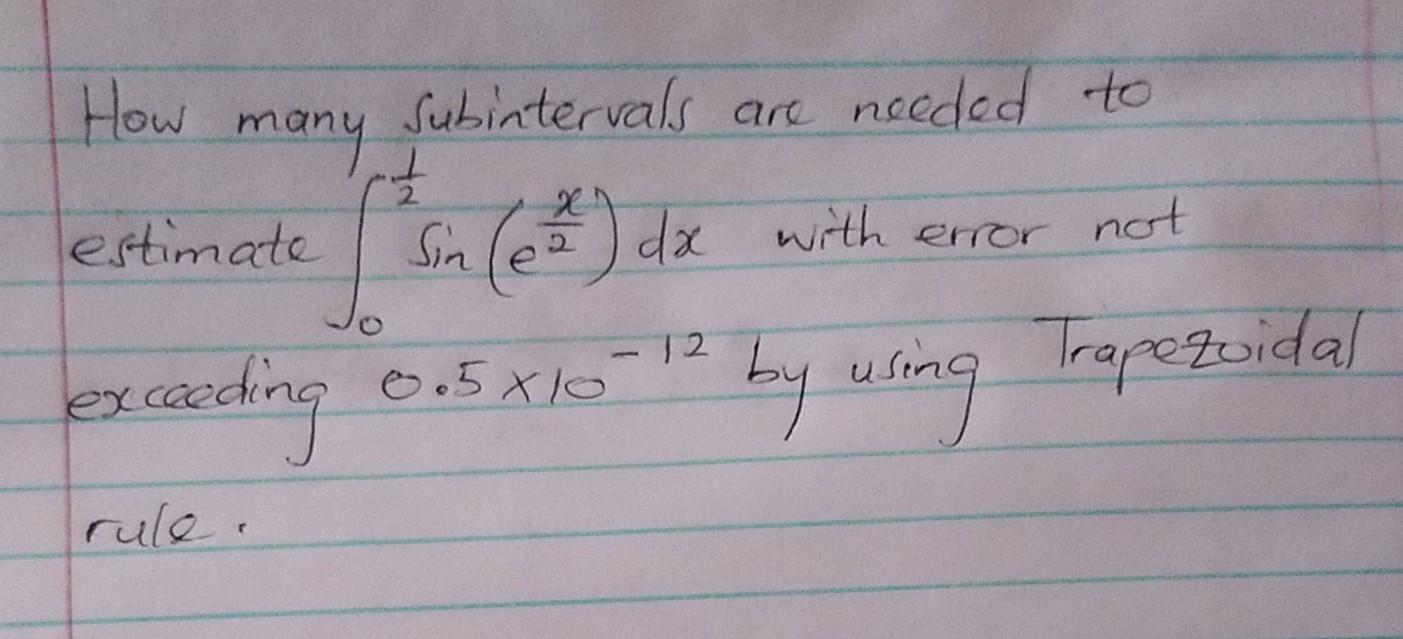 How many subintervals are needed to
estimate ∫₀^(1/2) sin(e^(x/2)) dx with error not
exceeding 0.5 × 10⁻¹² by using Trapezoidal
rule.